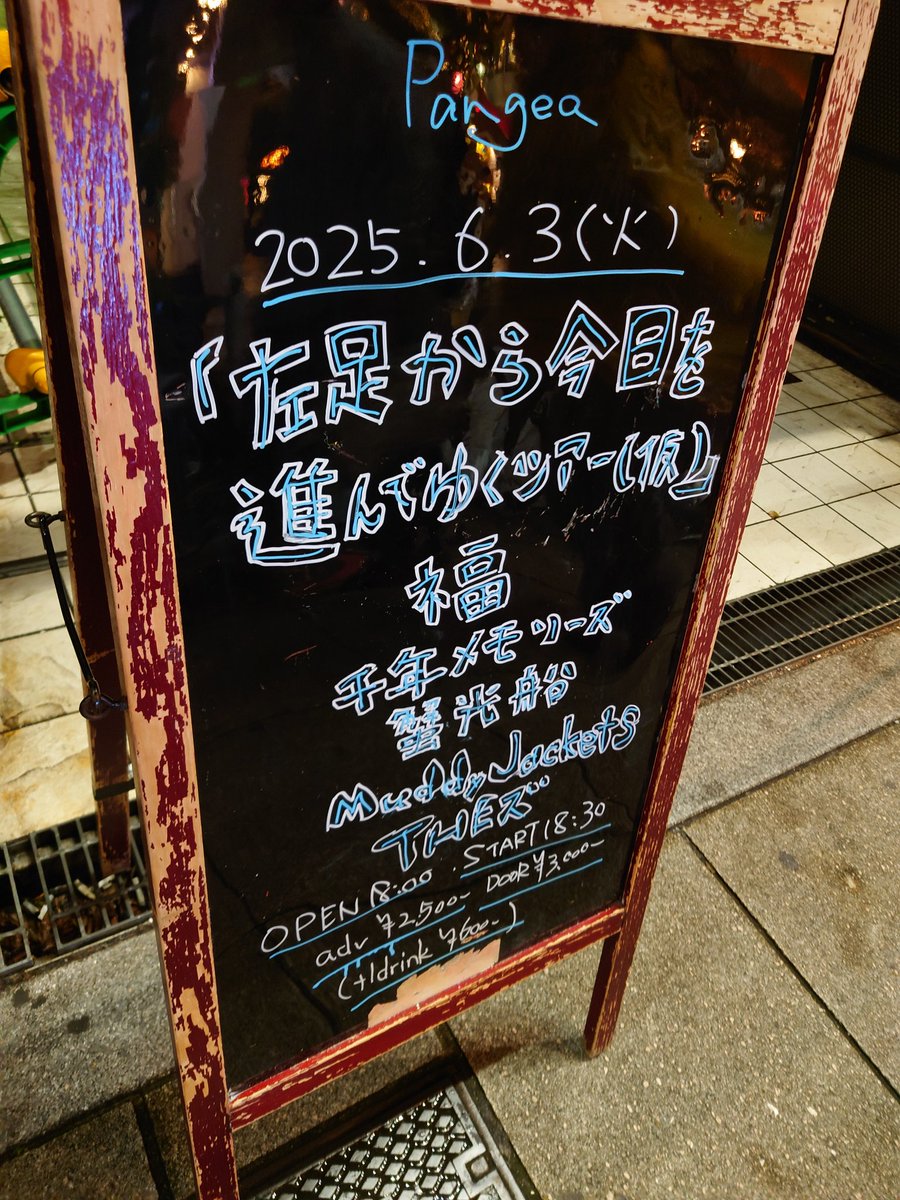 Pangea
2025.6.3(火)
「左足から今日を
進んでゆくツアー(仮)」
福
千年メモリーズ
蟹光船
Muddy Jackets
THEズ
OPEN 18:00 START 18:30
adv ¥2,500- DOOR ¥3,000-
(+1drink ¥600-)